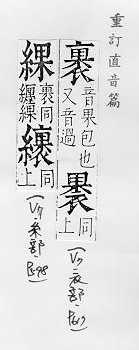 重訂直音篇
裹 音果包也
又音過
褁 同
上
衣部
綶 裹同
纏綶
同
上
糸部